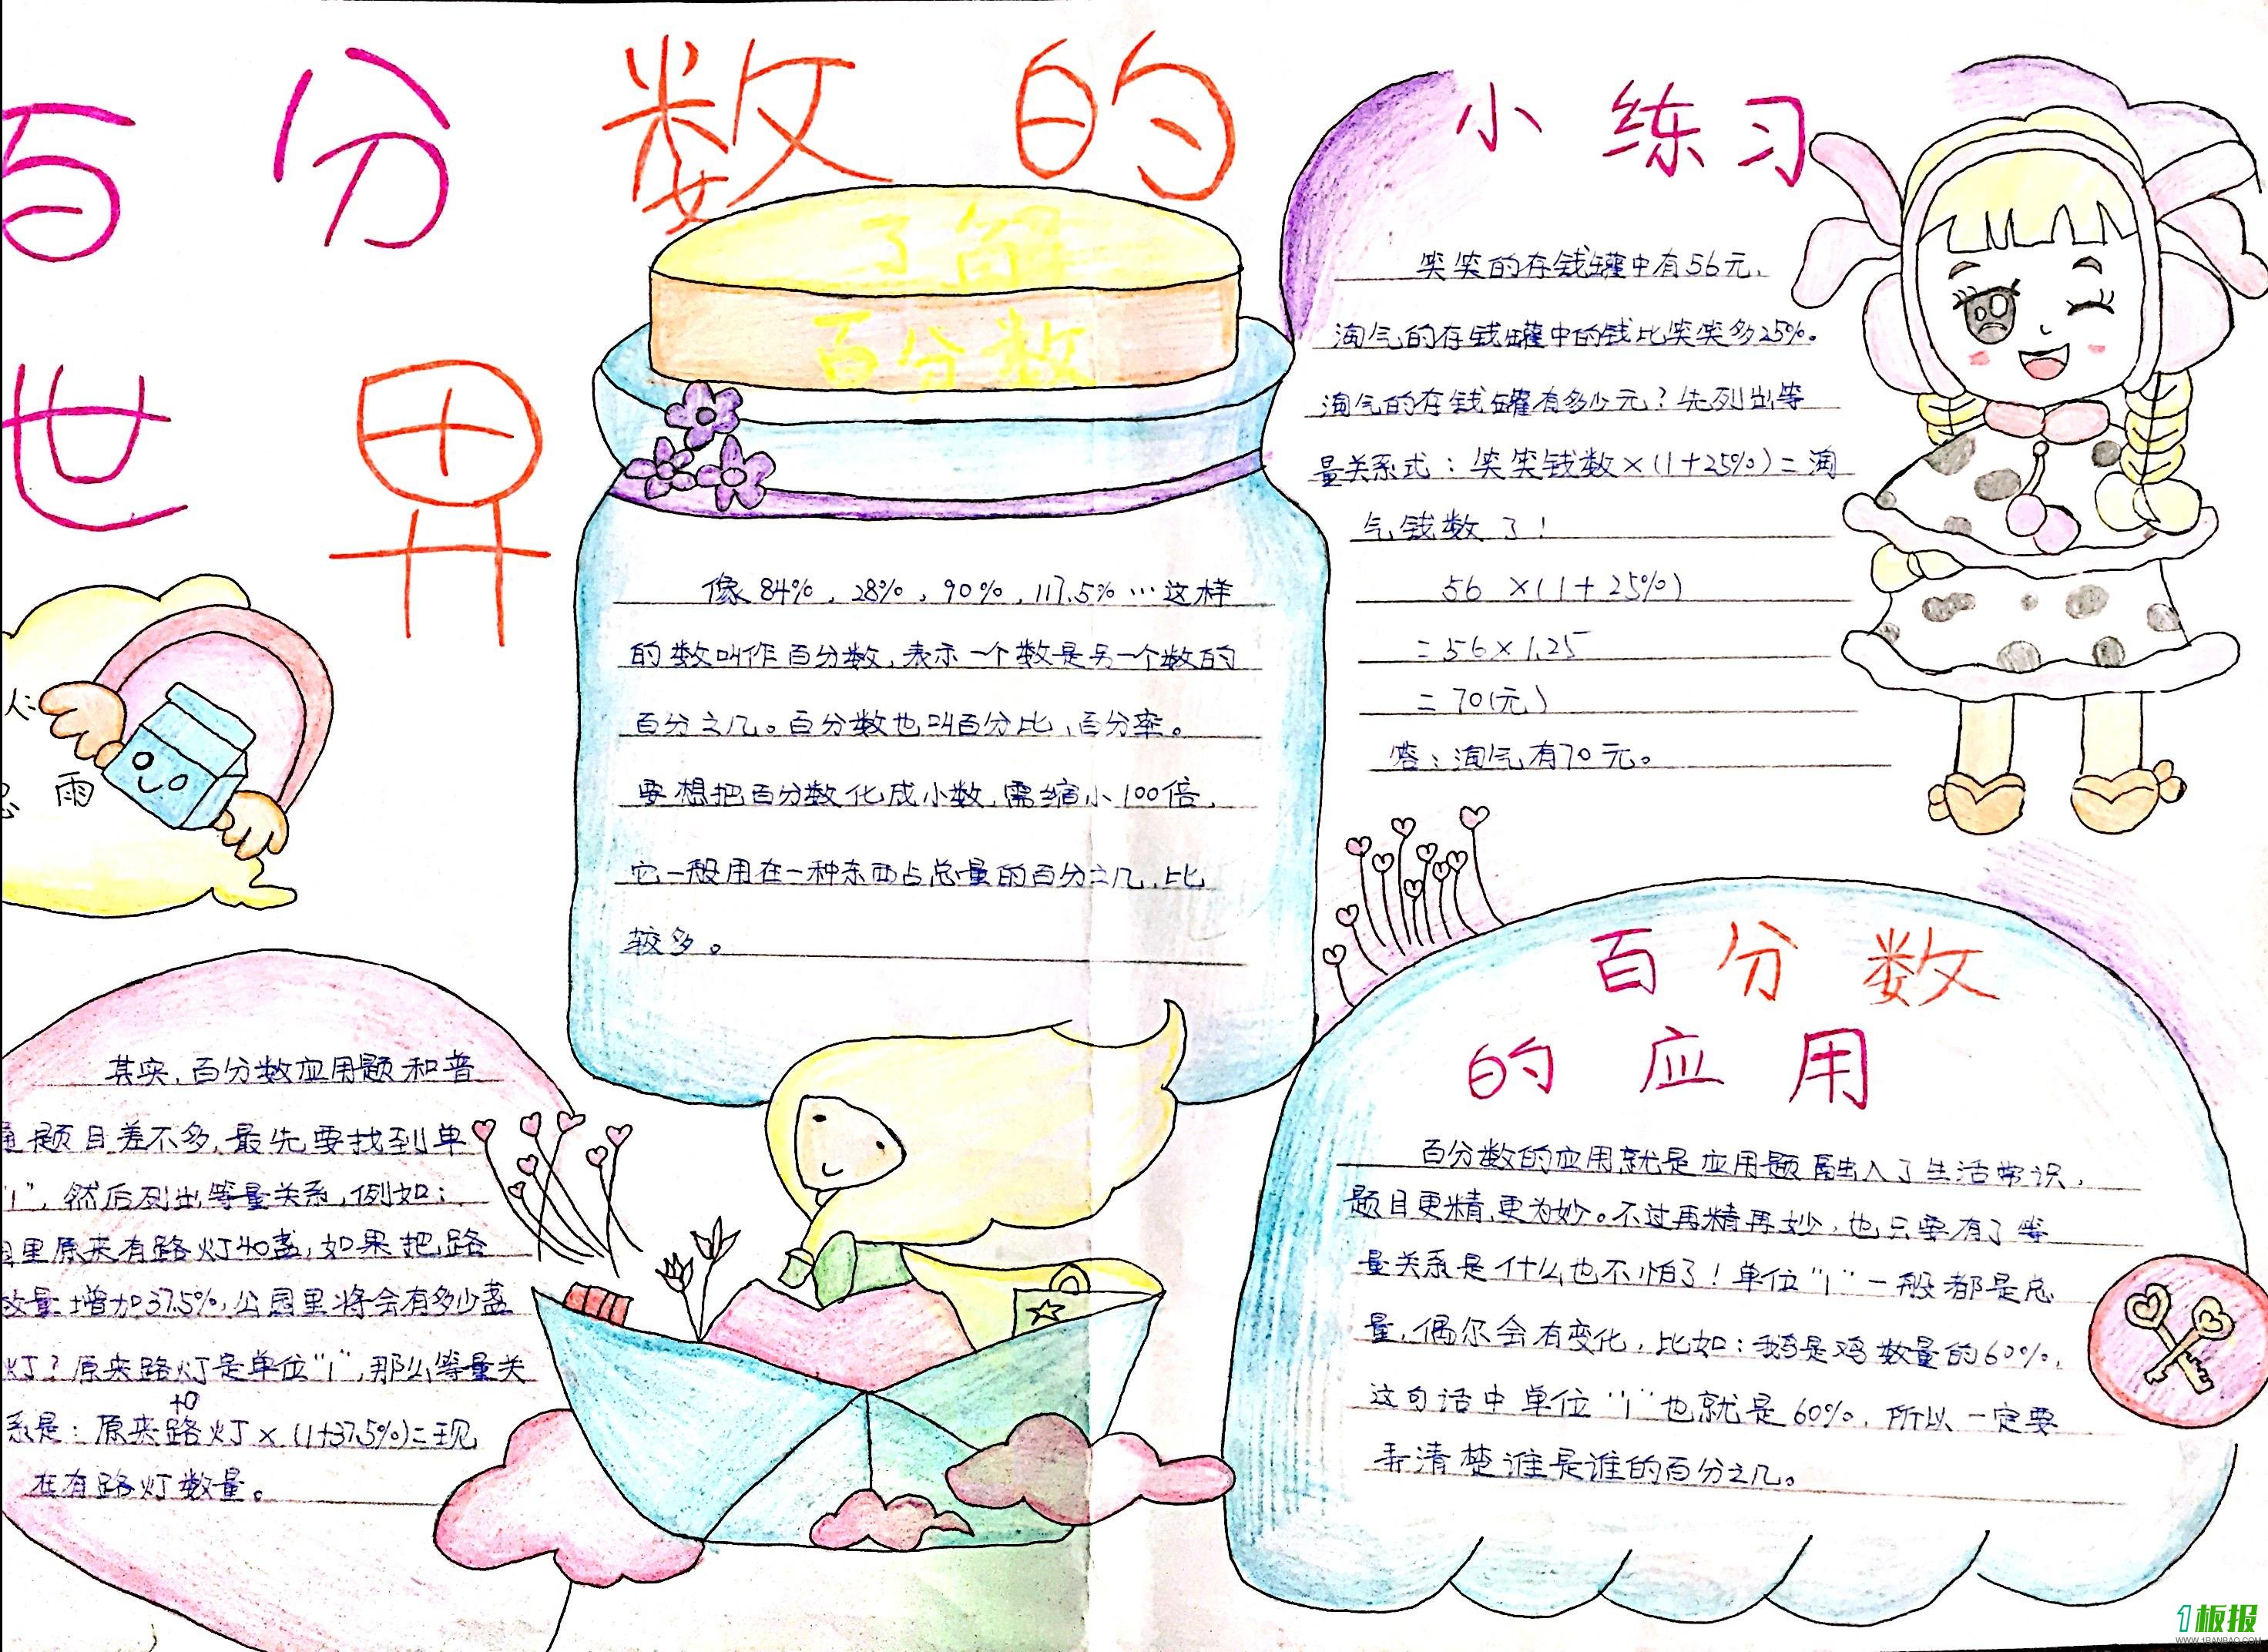 百分数的
世界
了解
百分数
像84%，28%，90%，117.5%…这样
的数叫作百分数，表示一个数是另一个数的
百分之几。百分数也叫百分比、百分率。
要想把百分数化成小数，需缩小100倍，
它一般用在一种东西占总量的百分之几，比
较多。
小练习
笑笑的存钱罐中有56元，
淘气的存钱罐中的钱比笑笑多25%。
淘气的存钱罐有多少元？先列出等
量关系式：笑笑钱数×(1+25%)=淘
气钱数了！
56 ×(1+25%)
=56×1.25
=70(元)
答：淘气有70元。
人：
雨
其实，百分数应用题和普
通题目差不多，最先要找到单
"1"，然后列出等量关系，例如：
里原来有路灯40盏，如果把路
数量增加37.5%，公园里将会有多少盏
灯？原来路灯是单位"1"，那么等量关
系是：原来路灯×(1+37.5%)=现
在有路灯数量。
百分数
的应用
百分数的应用就是应用题融入了生活常识，
题目更精，更为妙。不过再精再妙，也只要有了等
量关系是什么也不怕了！单位"1"一般都是总
量，偶尔会有变化，比如：鹅是鸡数量的60%，
这句话中单位"1"也就是60%，所以一定要
弄清楚谁是谁的百分之几。
1板报
WWW.1BANBAO.COM